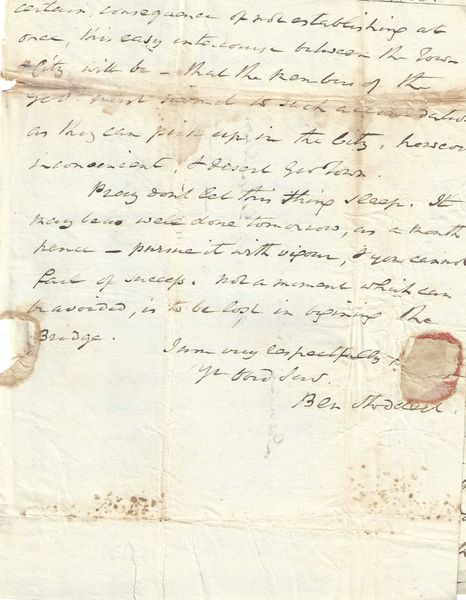 certain, consequence of not establishing at
once, this easy intercourse between the Town
& City, will be – that the members of the
Gov. must submit to such accommodation
as they can pick up in the City, however
inconvenient, & desert Geo Town.
Pray don't let this thing sleep. It
may be as well done tomorrow, as a month
hence – pursue it with vigour, & you cannot
fail of success. not a moment which can
be avoided, is to be lost in begining the
Bridge.
I am very respectfully
Yr Obed Serv.
Ben Stoddert